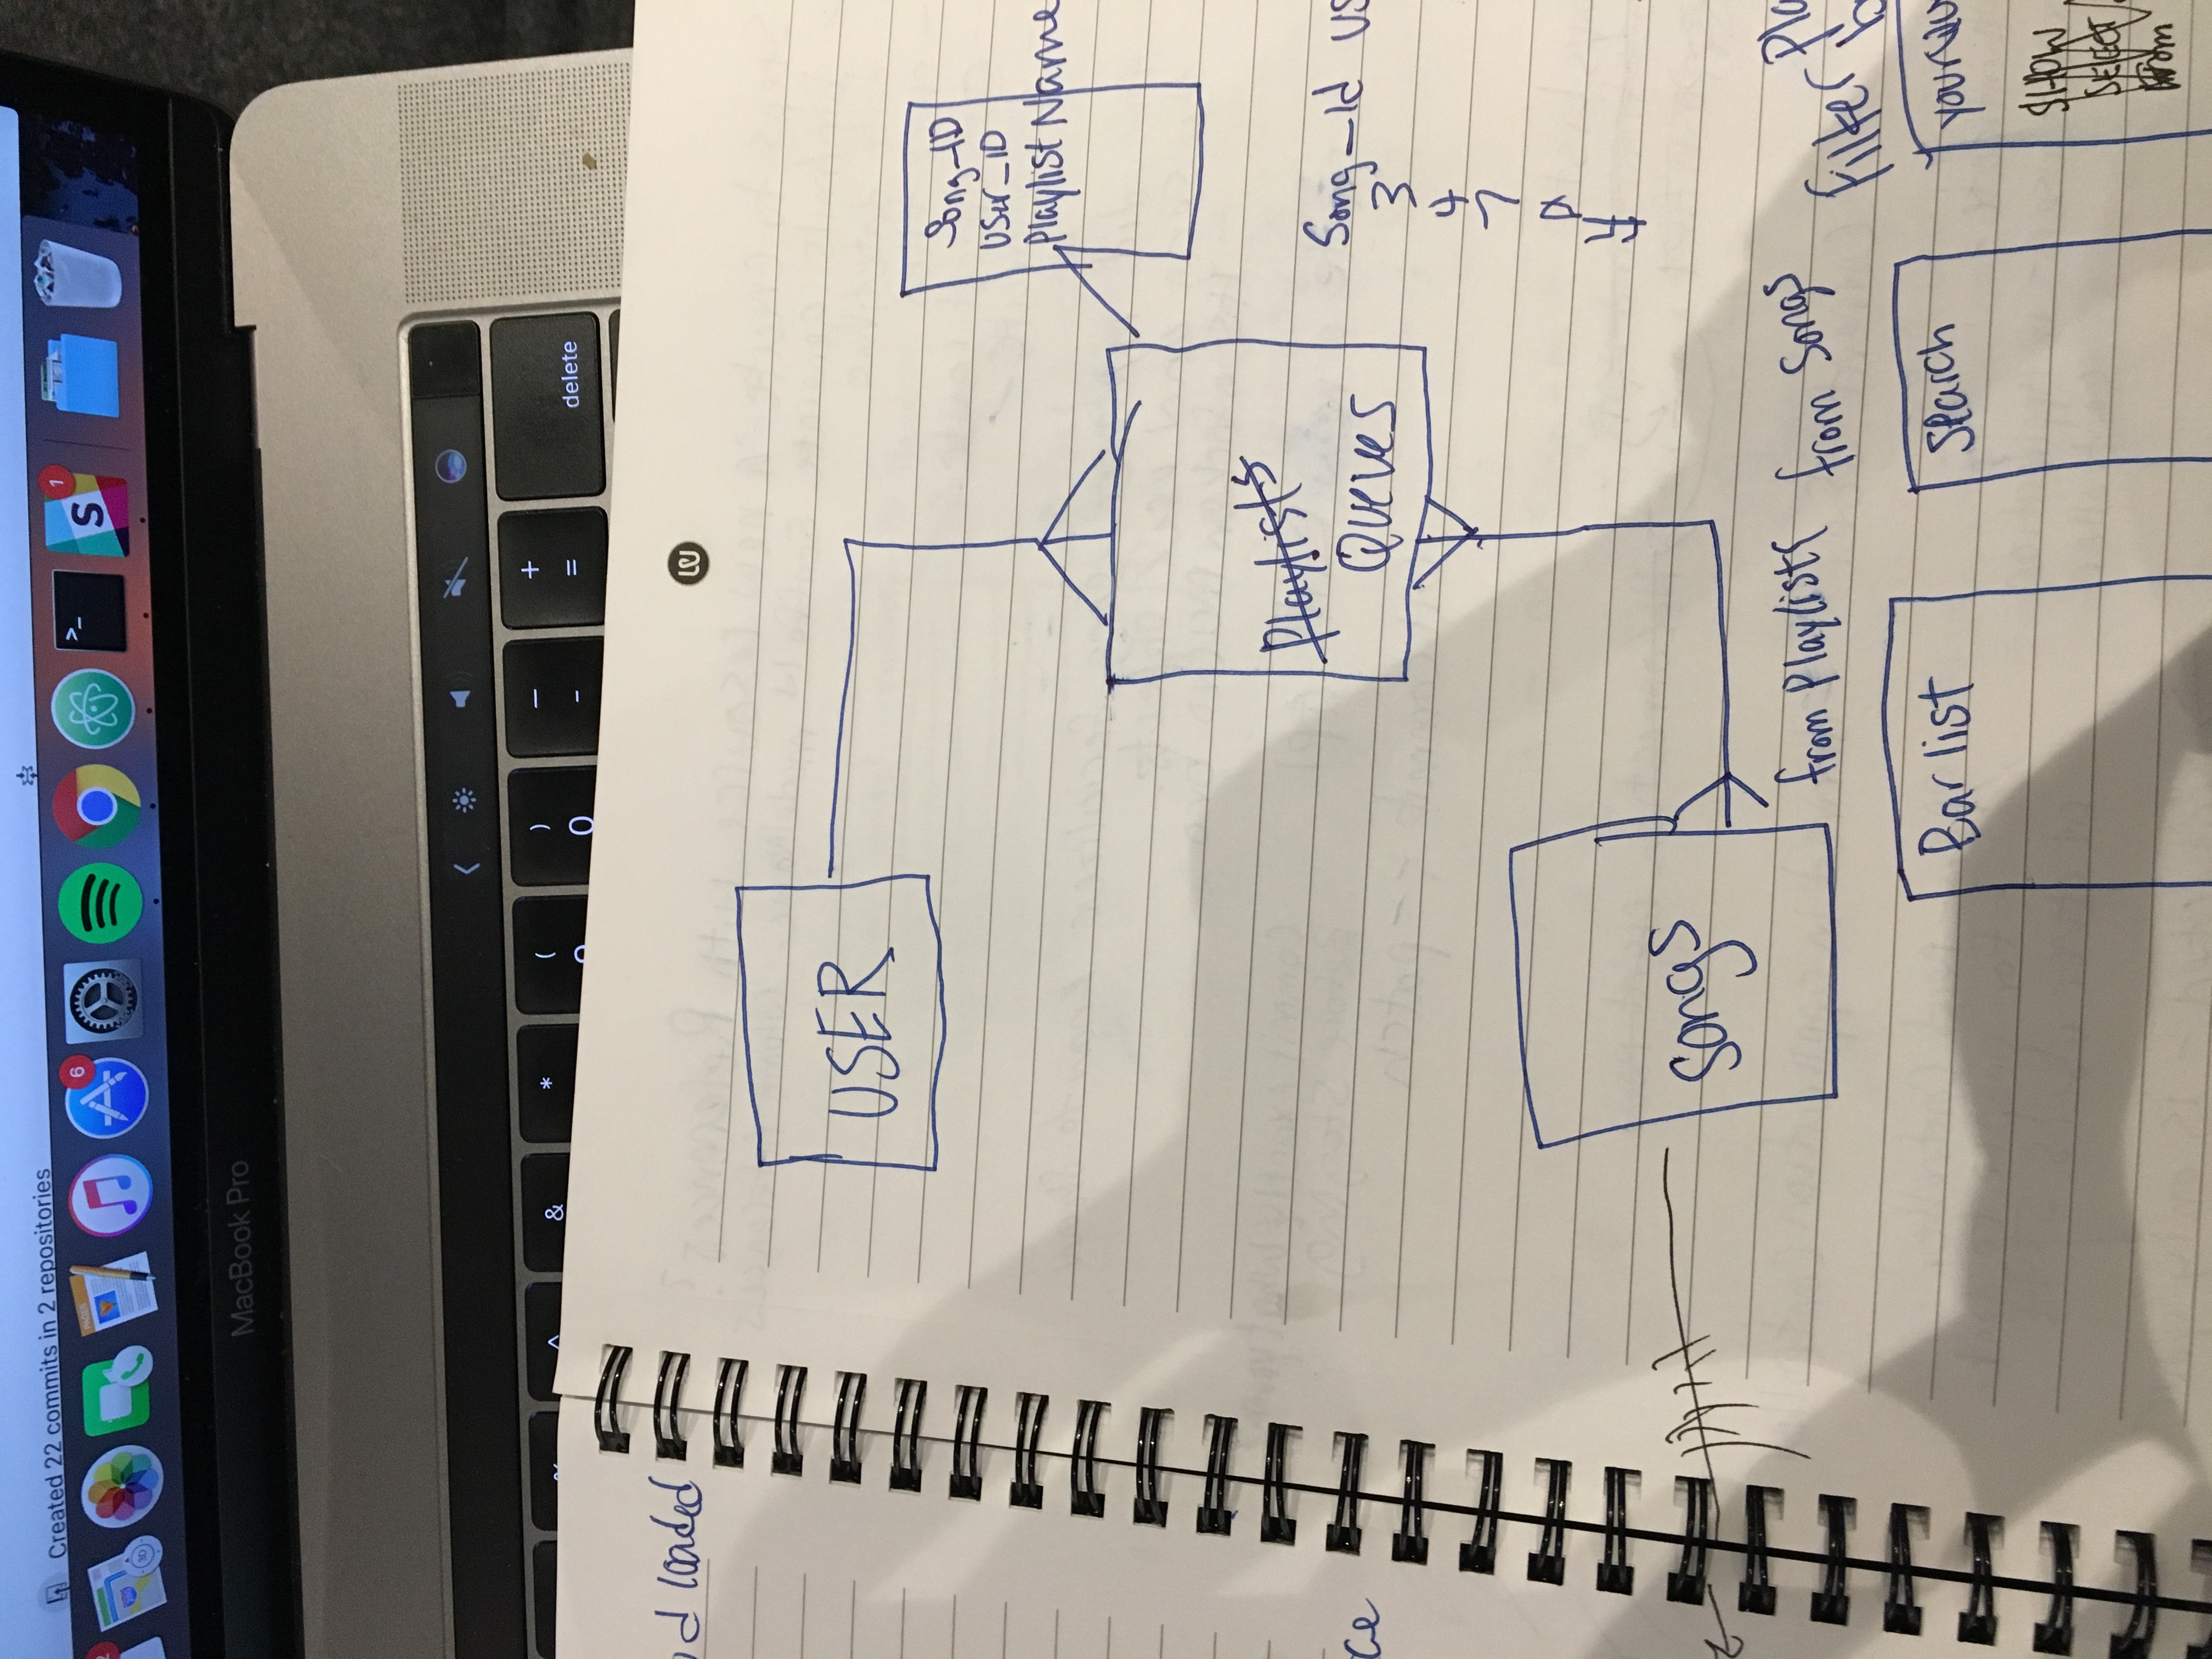 Created 22 commits in 2 repositories
PAGES
30
6
>_
S
1
MacBook Pro
&
*
(
)
0
—
-
+
=
delete
loaded
USER
Song_ID
User_ID
Playlist Name
Playlists
Queues
Song_Id US
3
4
7
4
Songs
from Playlists
from Songs
Filter Pla
Bar list
Search
your Qu
SHOW
SELECT
From